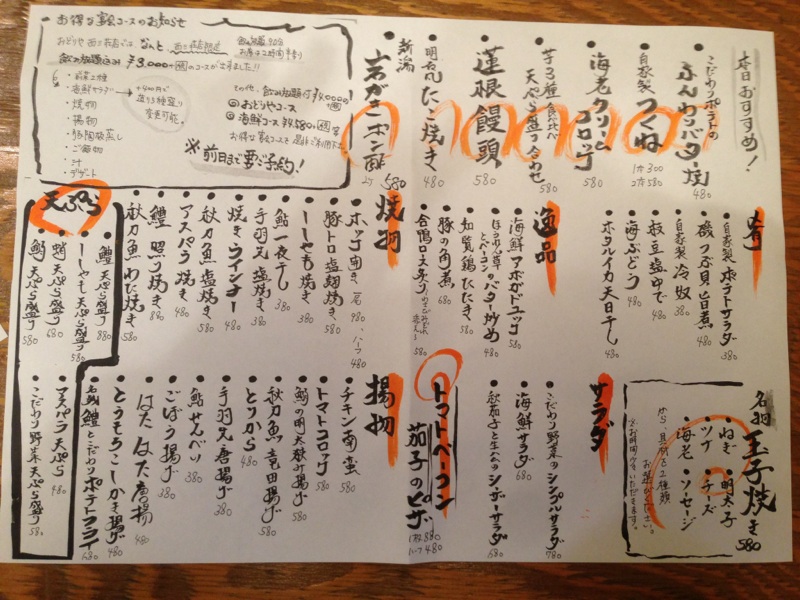 本日おすすめ!
こだわりポテトの
ふんわりバター焼 480
自家製
つくね 1本300
2本580
海老クリーム
コロッケ 580
芋3種食べ比べ
天ぷら盛り合わせ 580
蓮根饅頭 580
明太たこ焼き 480
新潟
岩がきポン酢 580
お得な宴コースのお知らせ
なんと
¥3,000
のコースが出来ました!!
・前菜2種
・海鮮サラダ
・焼物
・揚物
・ご飯物
・汁
・デザート
+400円で
変更可能。
①おどりやコース
②海鮮コース ¥4,580
※前日まで要ご予約!
肴
自家製ポテトサラダ 380
磯つぶ貝旨煮 480
自家製冷奴 380
枝豆塩ゆで 480
海ぶどう 480
ホタルイカ天日干し 480
逸品
海鮮アボガドユッケ 580
ほうれん草
とベーコンのバター炒め 480
知覧鶏たたき 580
豚の角煮 680
合鴨ロース炙り
焼物
ホッケ開き 一尾 980 ハーフ 480
豚トロ塩麹焼き 580
ししゃも焼き 380
鮎一夜干し 380
手羽先塩焼き 380
焼きウインナー 480
秋刀魚塩焼き 580
アスパラ焼き 480
鱧照り焼き 880
秋刀魚わた焼き 580
天ぷら
鱧天ぷら盛り 880
ししゃも天ぷら盛り 580
天ぷら盛り 580
天ぷら盛り 580
アスパラ天ぷら 480
こだわり野菜天ぷら盛り 580
名物
玉子焼き 580
・ねぎ ・明太子
・ツナ ・チーズ
・海老 ・ソーセージ
から、具材を2種類
お選びください。
サラダ
こだわり野菜のシンプルサラダ 780
海鮮サラダ 680
秋茄子と生ハムのシーザーサラダ 680
トマトベーコン
茄子のピザ 880
ハーフ 480
揚物
チキン南蛮 580
トマトコロッケ 580
鯛の明太挟み揚げ 580
秋刀魚竜田揚げ 580
とりから 480
手羽先唐揚げ 380
鮎せんべい 380
ごぼう揚げ 380
はたはた唐揚 480
とうもろこしかき揚げ 480
鱧とこだわりポテトフライ 680